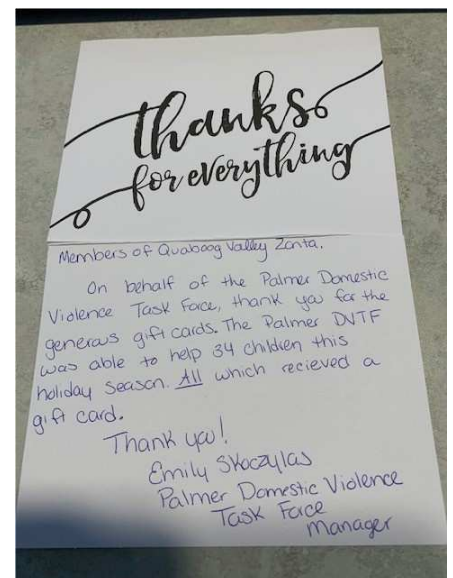 thanks
for everything
Members of Quaboag Valley Zonta,
On behalf of the Palmer Domestic
Violence Task Force, thank you for the
generous gift cards. The Palmer DVTF
was able to help 34 children this
holiday season. All which recieved a
gift card.
Thank you!
Emily Skoczylas
Palmer Domestic Violence
Task Force
Manager